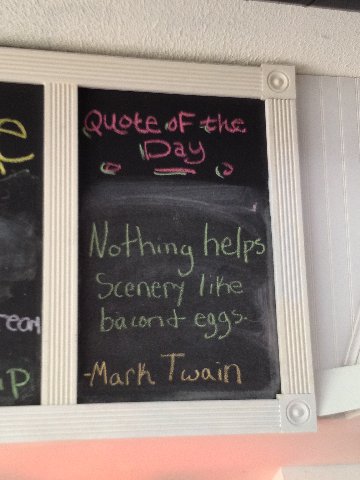 Quote of the
Day
Nothing helps
Scenery like
bacon & eggs.
-Mark Twain
eam
p